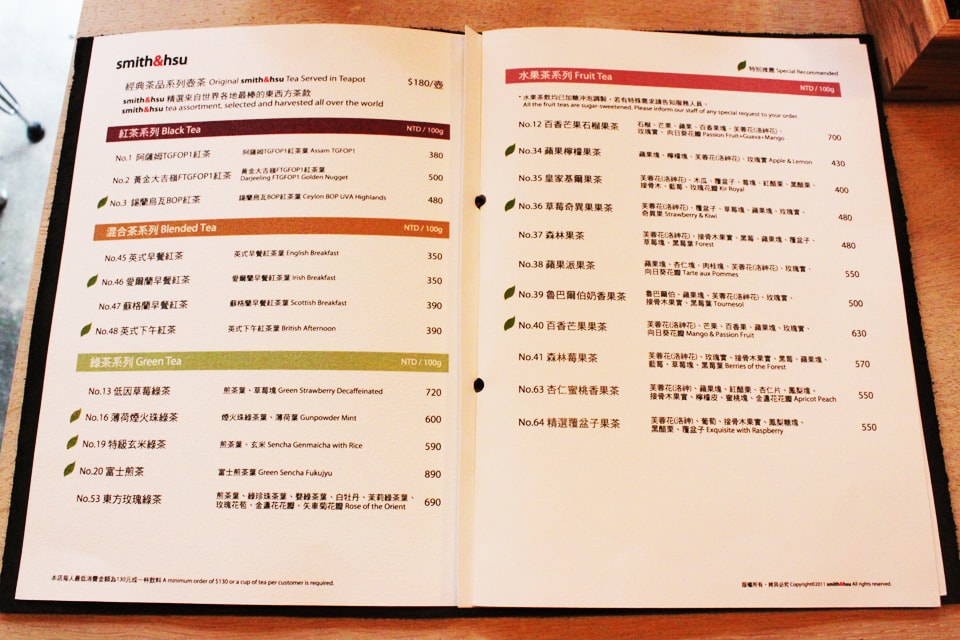 smith&hsu
經典茶品系列壺茶 Original smith&hsu Tea Served in Teapot $180/壺
smith&hsu 精選來自世界各地最棒的東西方茶款
smith&hsu tea assortment, selected and harvested all over the world
紅茶系列 Black Tea NTD / 100g
No.1 阿薩姆TGFOP1紅茶 阿薩姆TGFOP1紅茶葉 Assam TGFOP1 380
No.2 黃金大吉嶺FTGFOP1紅茶 黃金大吉嶺FTGFOP1紅茶葉
Darjeeling FTGFOP1 Golden Nugget 500
No.3 錫蘭烏瓦BOP紅茶 錫蘭烏瓦BOP紅茶葉 Ceylon BOP UVA Highlands 480
混合茶系列 Blended Tea NTD / 100g
No.45 英式早餐紅茶 英式早餐紅茶葉 English Breakfast 350
No.46 愛爾蘭早餐紅茶 愛爾蘭早餐紅茶葉 Irish Breakfast 350
No.47 蘇格蘭早餐紅茶 蘇格蘭早餐紅茶葉 Scottish Breakfast 390
No.48 英式下午紅茶 英式下午紅茶葉 British Afternoon 390
綠茶系列 Green Tea NTD / 100g
No.13 低因草莓綠茶 煎茶葉、草莓塊 Green Strawberry Decaffeinated 720
No.16 薄荷煙火珠綠茶 煙火珠綠茶葉、薄荷葉 Gunpowder Mint 600
No.19 特級玄米綠茶 煎茶葉、玄米 Sencha Genmaicha with Rice 590
No.20 富士煎茶 富士煎茶葉 Green Sencha Fukujyu 890
No.53 東方玫瑰綠茶 煎茶葉、綠珍珠茶葉、綠茶葉、白牡丹、茉莉綠茶葉、
玫瑰花苞、金盞花花瓣、矢車菊花瓣 Rose of the Orient 690
本店每人最低消費金額為130元或一杯飲料 A minimum order of $130 or a cup of tea per customer is required.
特別推薦 Special Recommended
水果茶系列 Fruit Tea NTD / 100g
* 水果茶款均已加糖沖泡調製，若有特殊需求請告知服務人員。
All the fruit teas are sugar-sweetened. Please inform our staff of any special request to your order.
No.12 百香芒果石榴果茶 石榴、芒果、蘋果、百香果塊、芙蓉花(洛神花)、
玫瑰實、向日葵花瓣 Passion Fruit+Guava+Mango 700
No.34 蘋果檸檬果茶 蘋果塊、檸檬塊、芙蓉花(洛神花)、玫瑰實 Apple & Lemon 430
No.35 皇家基爾果茶 芙蓉花(洛神花)、木瓜、覆盆子、莓塊、紅醋栗、黑醋栗、
接骨木、藍莓、玫瑰花瓣 Kir Royal 400
No.36 草莓奇異果果茶 芙蓉花(洛神花)、覆盆子、草莓塊、蘋果塊、玫瑰實、
奇異果 Strawberry & Kiwi 480
No.37 森林果茶 芙蓉花(洛神花)、接骨木果實、黑莓、蘋果塊、覆盆子、
草莓塊、黑莓葉 Forest 480
No.38 蘋果派果茶 蘋果塊、杏仁塊、肉桂塊、芙蓉花(洛神花)、玫瑰實、
向日葵花瓣 Tarte aux Pommes 550
No.39 魯巴爾伯奶香果茶 魯巴爾伯、蘋果塊、芙蓉花(洛神花)、玫瑰實、
接骨木果實、黑莓葉 Tournesol 500
No.40 百香芒果果茶 芙蓉花(洛神花)、芒果、百香果、蘋果塊、玫瑰實、
向日葵花瓣 Mango & Passion Fruit 630
No.41 森林莓果茶 芙蓉花(洛神花)、玫瑰實、接骨木果實、黑莓、蘋果塊、
藍莓、草莓塊、黑莓葉 Berries of the Forest 570
No.63 杏仁蜜桃香果茶 芙蓉花(洛神)、蘋果塊、紅醋栗、杏仁片、鳳梨塊、
接骨木果實、檸檬皮、蜜桃塊、金盞花花瓣 Apricot Peach 550
No.64 精選覆盆子果茶 芙蓉花(洛神)、葡萄、接骨木果實、鳳梨糖塊、
黑醋栗、覆盆子 Exquisite with Raspberry 550
版權所有、拷貝必究 Copyright©2011 smith&hsu All rights reserved.